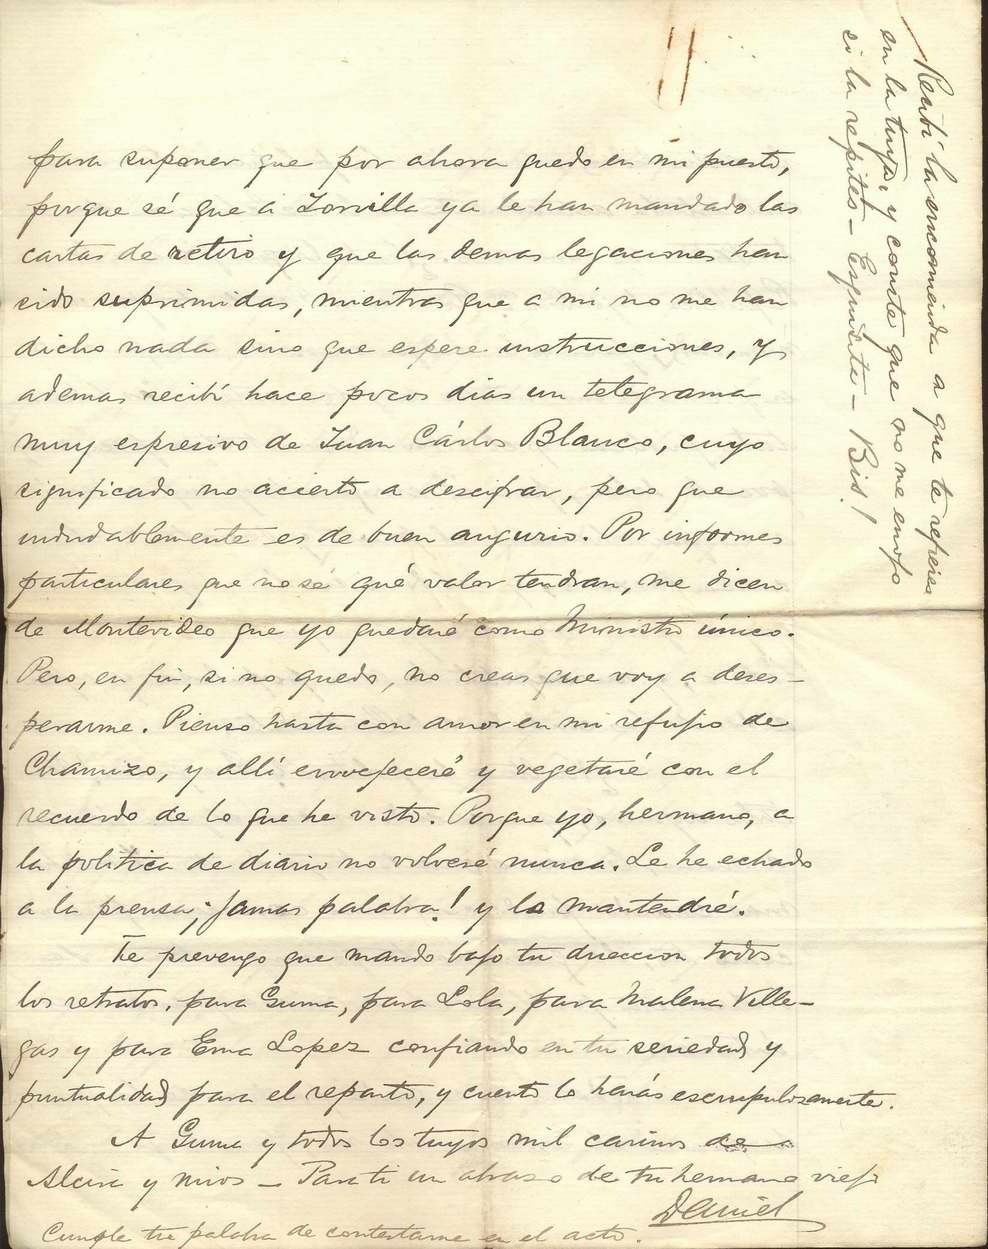 para suponer que por ahora quedo en mi puesto,
porque sé que a Zorrilla ya le han mandado las
cartas de retiro y que las demas legaciones han
sido suprimidas, mientras que a mi no me han
dicho nada sino que espere instrucciones, y
ademas recibí hace pocos dias un telegrama
muy espresivo de Juan Cárlos Blanco, cuyo
significado no acierto a descifrar, pero que
indudablemente es de buen augurio. Por informes
particulares que no sé qué valor tendran, me dicen
de Montevideo que yo quedaré como Ministro único.
Pero, en fin, si no quedo, no creas que voy a deses-
perarme. Pienso hasta con amor en mi refujio de
Chamizo, y allí envejeceré y vegetaré con el
recuerdo de lo que he visto. Porque yo, hermano, a
la politica de diario no volveré nunca. Le he echado
a la prensa ¡jamas palabra! y la mantendré.
Te prevengo que mando bajo tu direccion todos
los retratos, para Guma, para Lola, para Malena Ville-
gas y para Ema Lopez confiando en tu seriedad y
puntualidad para el reparto, y cuento lo harás escrupulosamente.
A Guma y todos los tuyos mil cariños de
Alcira y mios - Para ti un abrazo de tu hermano viejo
Daniel
Cumple tu palabra de contestarme en el acto.
Recibí la encomienda a que te refieres
en la tuya, y conste que no me enojo
si la repites - Esquisite - Bis!